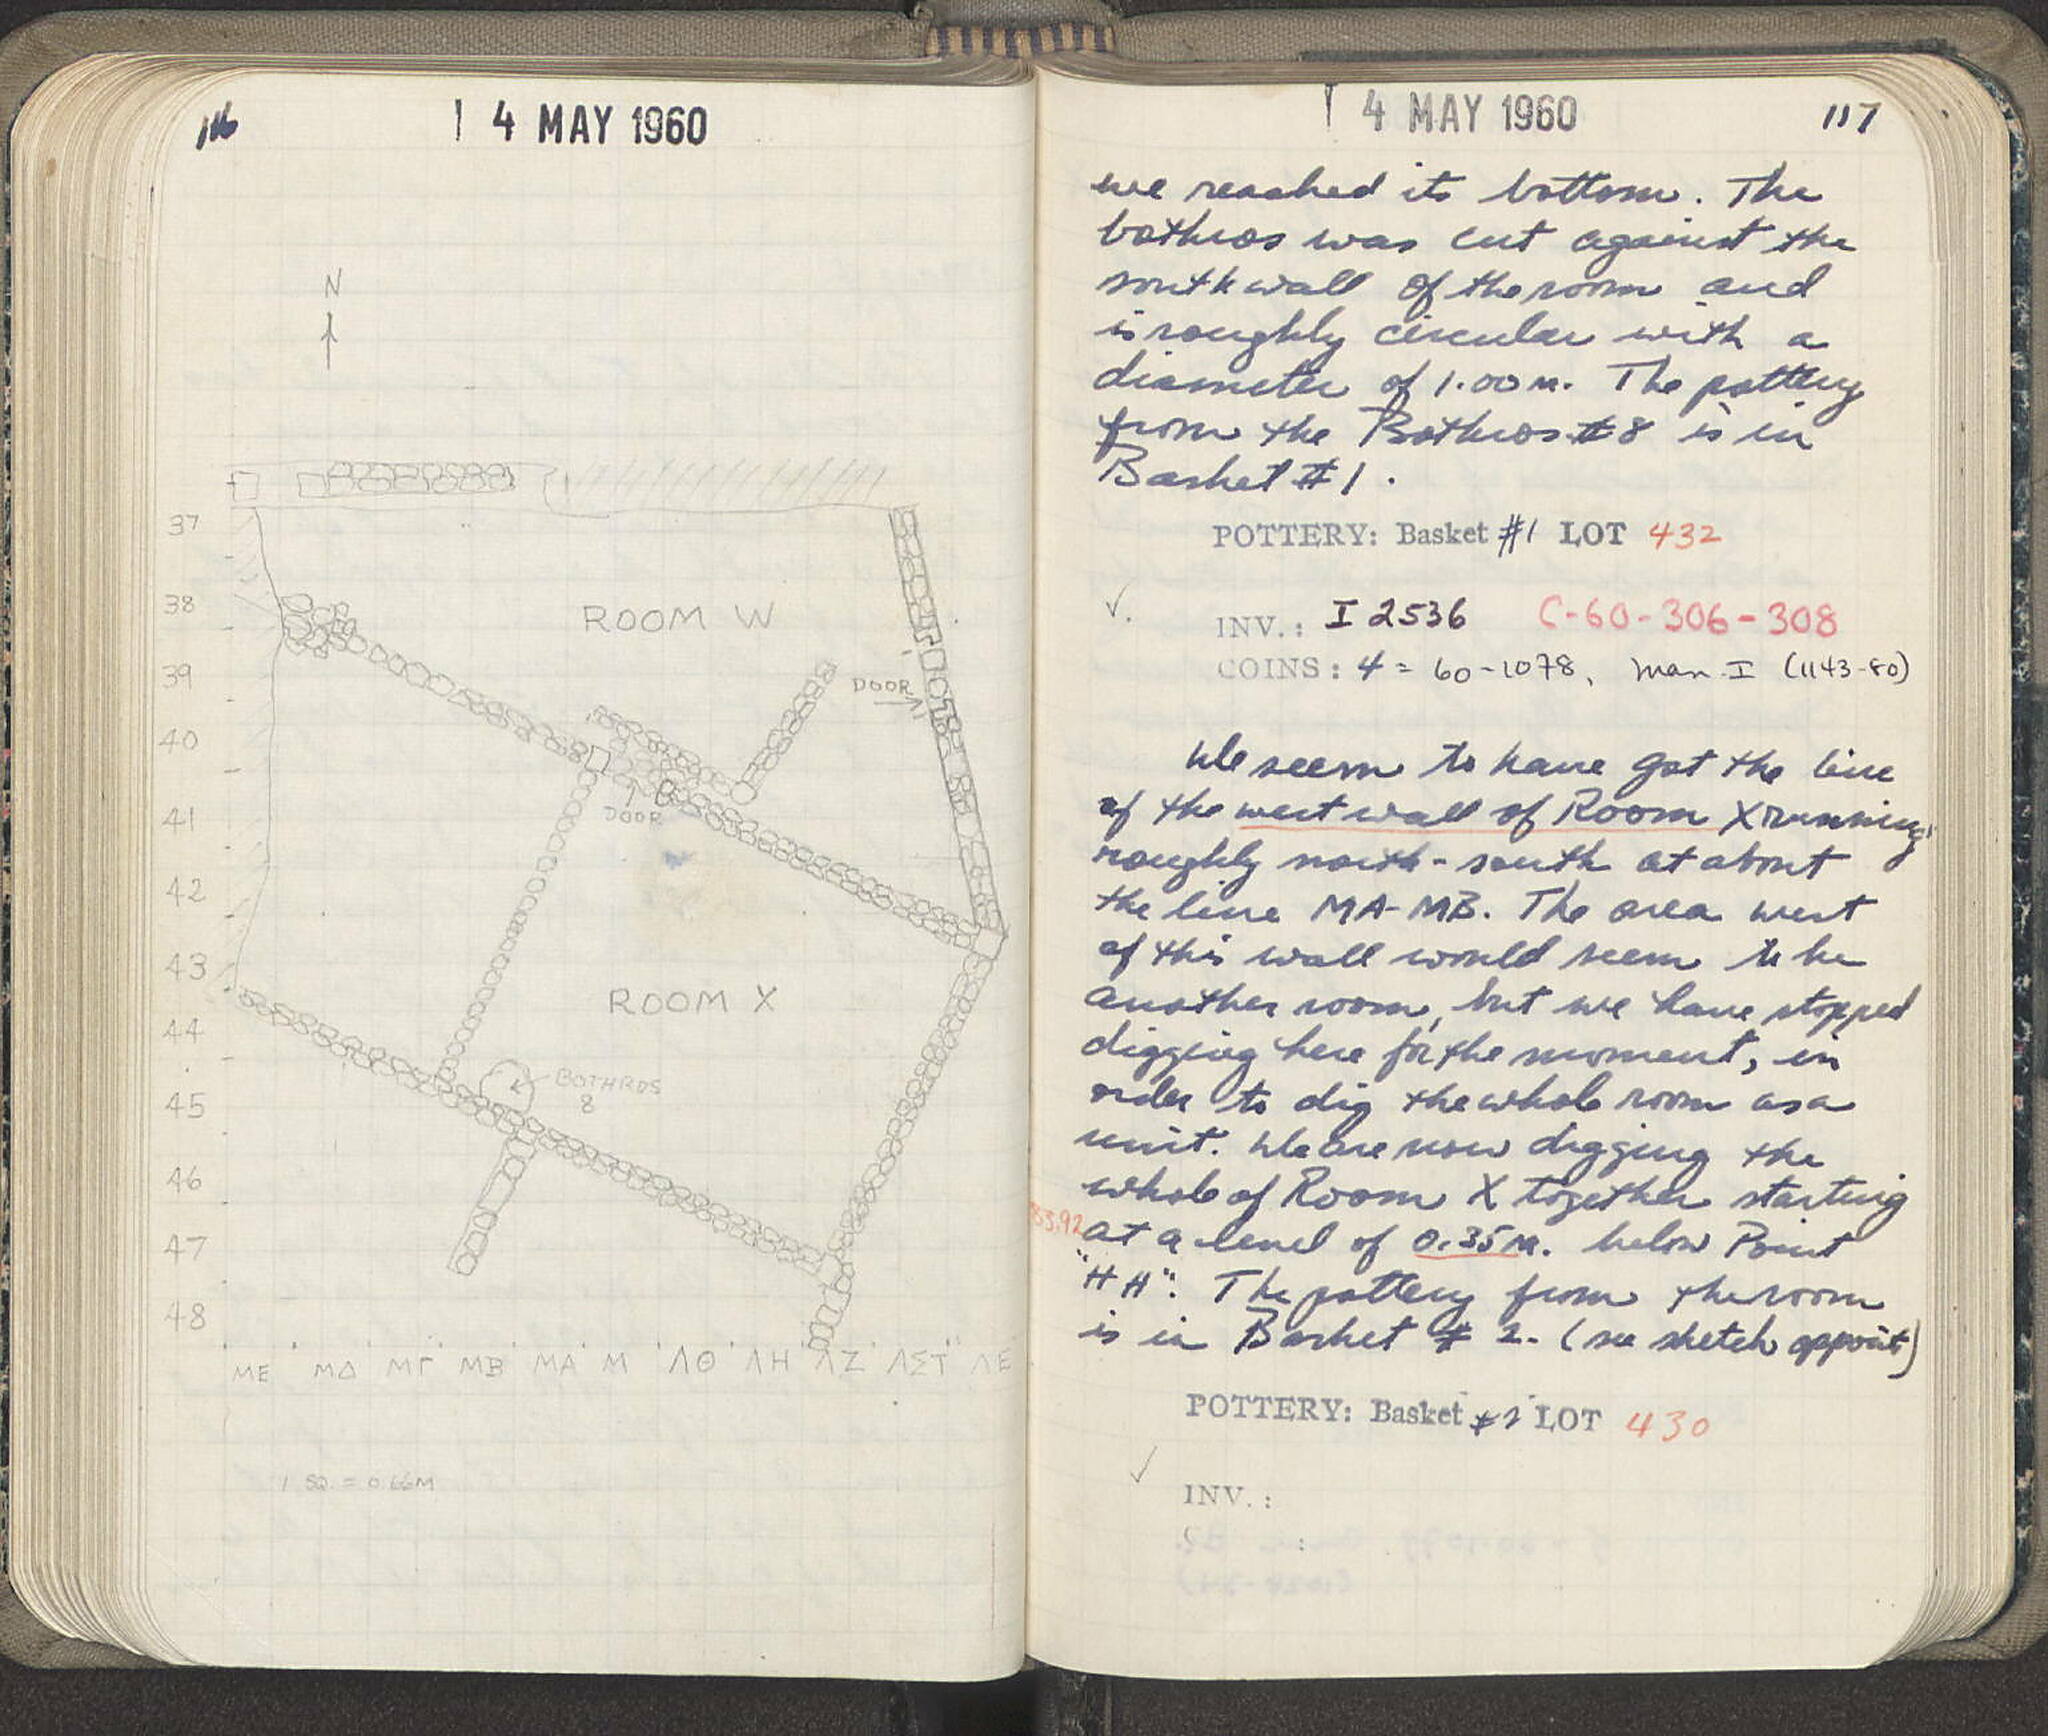 116
1 4 MAY 1960
N
37
38
39
40
41
42
43
44
45
46
47
48
ROOM W
DOOR
DOOR
ROOM X
BOTHROS
8
ΜΕ ΜΔ ΜΓ ΜΒ ΜΑ Μ ΛΘ ΛΗ ΛΖ ΛΣΤ ΛΕ
1 SQ. = 0.66M
1 4 MAY 1960
117
we reached its bottom. The
bothros was cut against the
south wall of the room and
is roughly circular with a
diameter of 1.00 m. The pottery
from the Bothros #8 is in
Basket #1.
POTTERY: Basket #1 LOT 432
INV.: I 2536 C-60-306-308
COINS: 4 = 60-1078, Man. I (1143-80)
We seem to have got the line
of the west wall of Room X running
roughly north-south at about
the line MA-MB. The area west
of this wall would seem to be
another room, but we have stopped
digging here for the moment, in
order to dig the whole room as a
unit. We are now digging the
whole of Room X together starting
83.92
at a level of 0.35 m. below Point
"HH". The pottery from the room
is in Basket # 2. (see sketch opposite)
POTTERY: Basket #2 LOT 430
INV.: